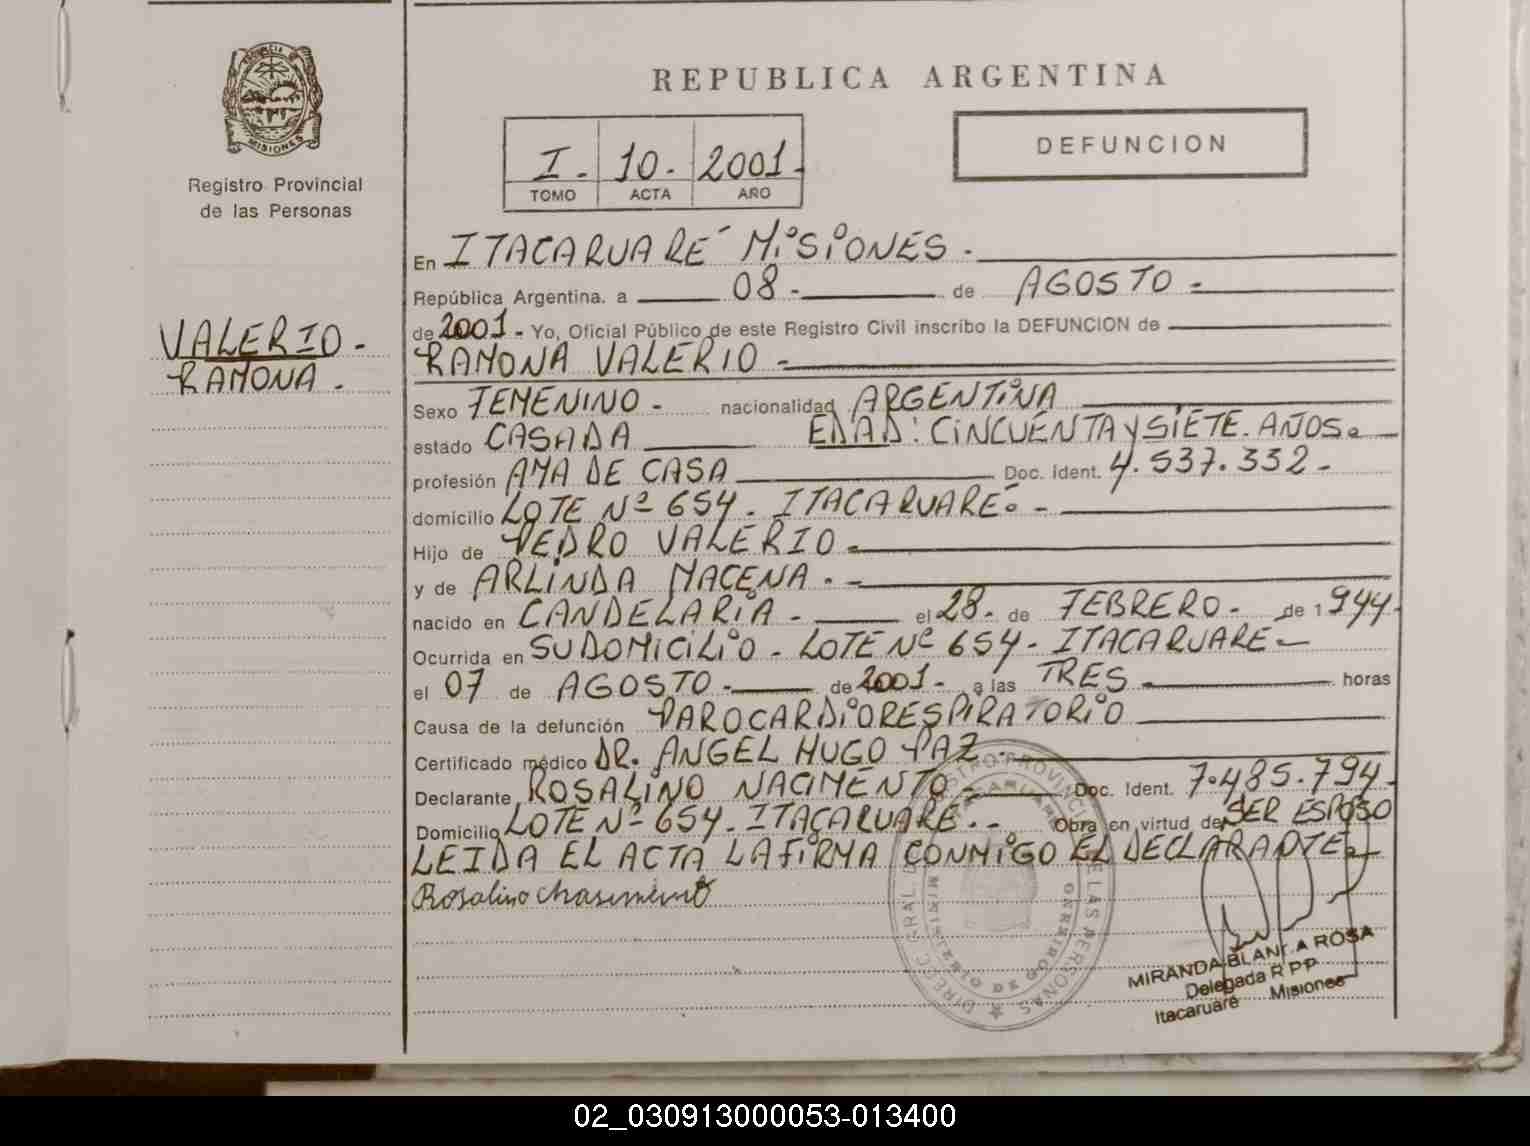 PROVINCIA DE
MISIONES
Registro Provincial
de las Personas
VALERIO -
RAMONA -
REPUBLICA ARGENTINA
DEFUNCION
I - 10 - 2001 -
TOMO ACTA AÑO
En ITACARUARE´ MiSiONES -
República Argentina, a 08 - de AGOSTO -
de 2001 - Yo, Oficial Público de este Registro Civil inscribo la DEFUNCION de
RAMONA VALERIO -
Sexo FEMENINO - nacionalidad ARGENTiNA
estado CASADA EDAD: CiNCUENTA y SiETE. AÑOS.
profesión AMA DE CASA Doc. Ident. 4.537.332 -
domicilio LOTE Nº 654 - ITACARUARE. -
Hijo de PEDRO VALERIO -
y de ARLiNDA MACENA. -
nacido en CANDELARiA - el 28 - de FEBRERO - de 1944 -
Ocurrida en SU DOMiCiLiO - LOTE Nº 654 - ITACARUARE -
el 07 de AGOSTO - de 2001 - a las TRES - horas
Causa de la defunción PAROCARDiORESPIRATORiO
Certificado médico DR. ANGEL HUGO PAZ -
Declarante ROSALiNO NACIMENTO - Doc. Ident. 7.485.794 -
Domicilio LOTE Nº 654 - ITACARUARE. - Obra en virtud de SER ESPOSO
LEIDA EL ACTA LA FiRMA CONMiGO EL DECLARANTE
Rosalino Nasimento
MIRANDA BLANCA ROSA
Delegada R P P
Itacaruaré Misiones
02_030913000053-013400